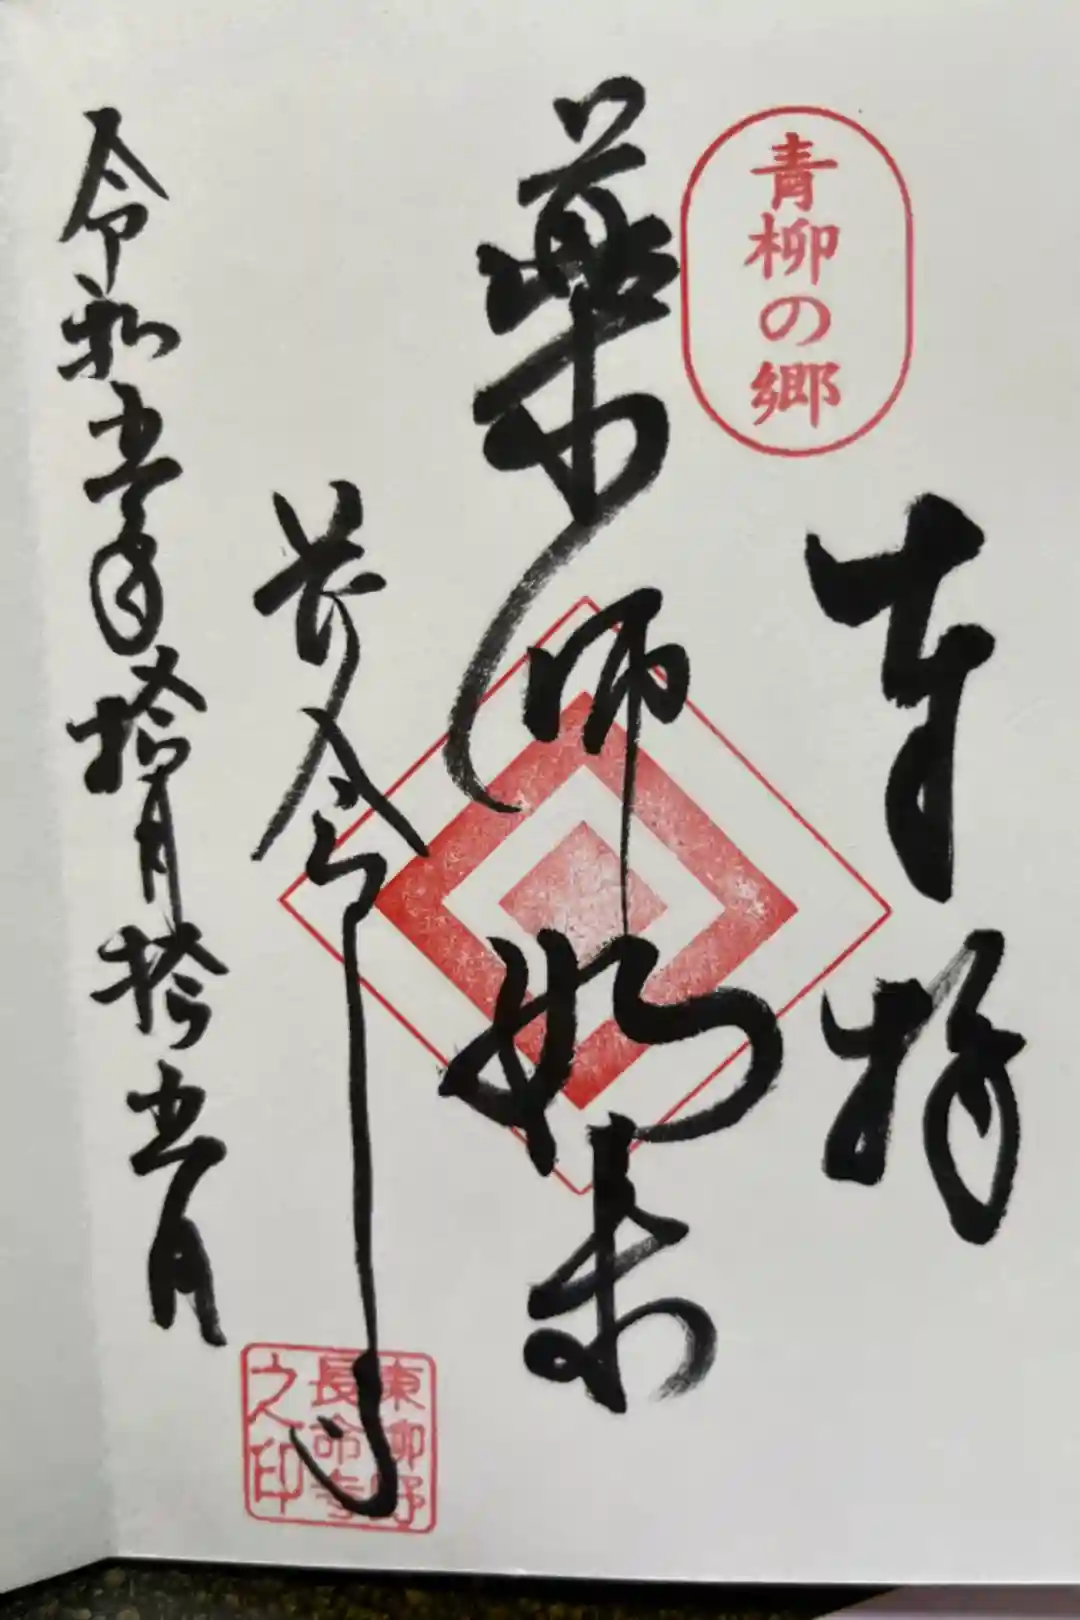 青柳の郷
奉拝
薬師如来
長命寺
令和五年拾月拾五日
東柳野
長命寺
之印